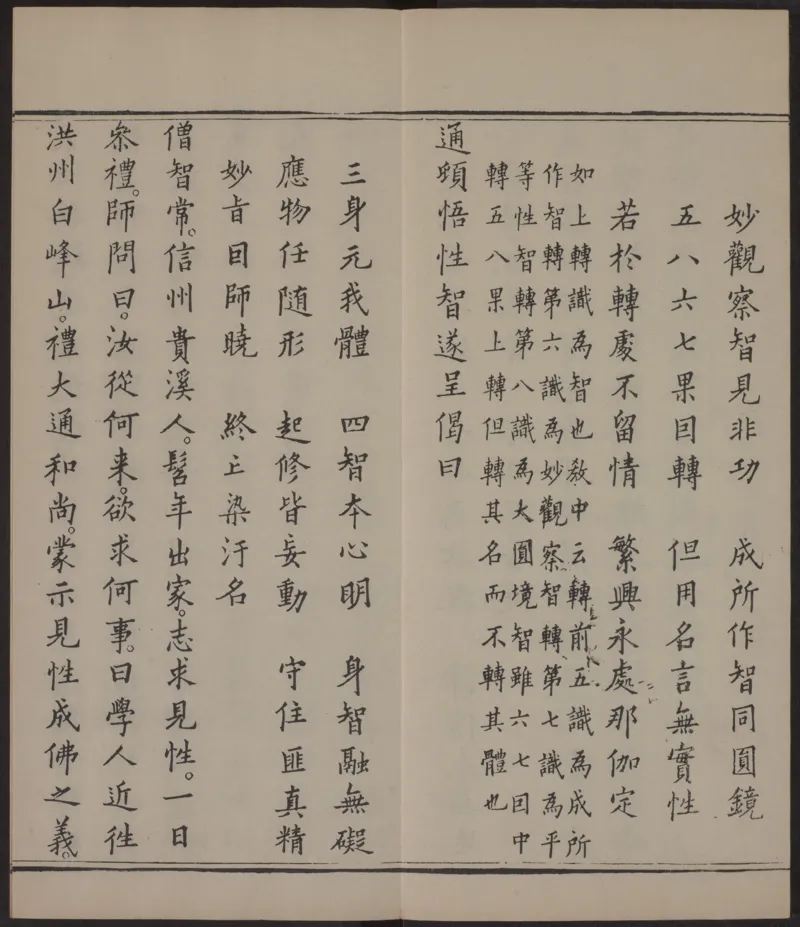 妙觀察智見非功　成所作智同圓鏡
五八六七果囙轉　但用名言無實性
若於轉處不留情　繁興永處那伽定
如上轉識爲智也教中云轉前五識爲成所
作智轉第六識爲妙觀察智轉第七識爲平
等性智轉第八識爲大圓境智雖六七囙中
轉五八果上轉但轉其名而不轉其體也
通頓悟性智遂呈偈曰
三身元我體　四智本心明　身智融無礙
應物任隨形　起修皆妄動　守住匪真精
妙旨囙師曉　終亡染汙名
僧智常。信州貴溪人。髫年出家。志求見性。一日
叅禮。師問曰。汝從何來。欲求何事。曰學人近徃
洪州白峰山。禮大通和尚。蒙示見性成佛之義。